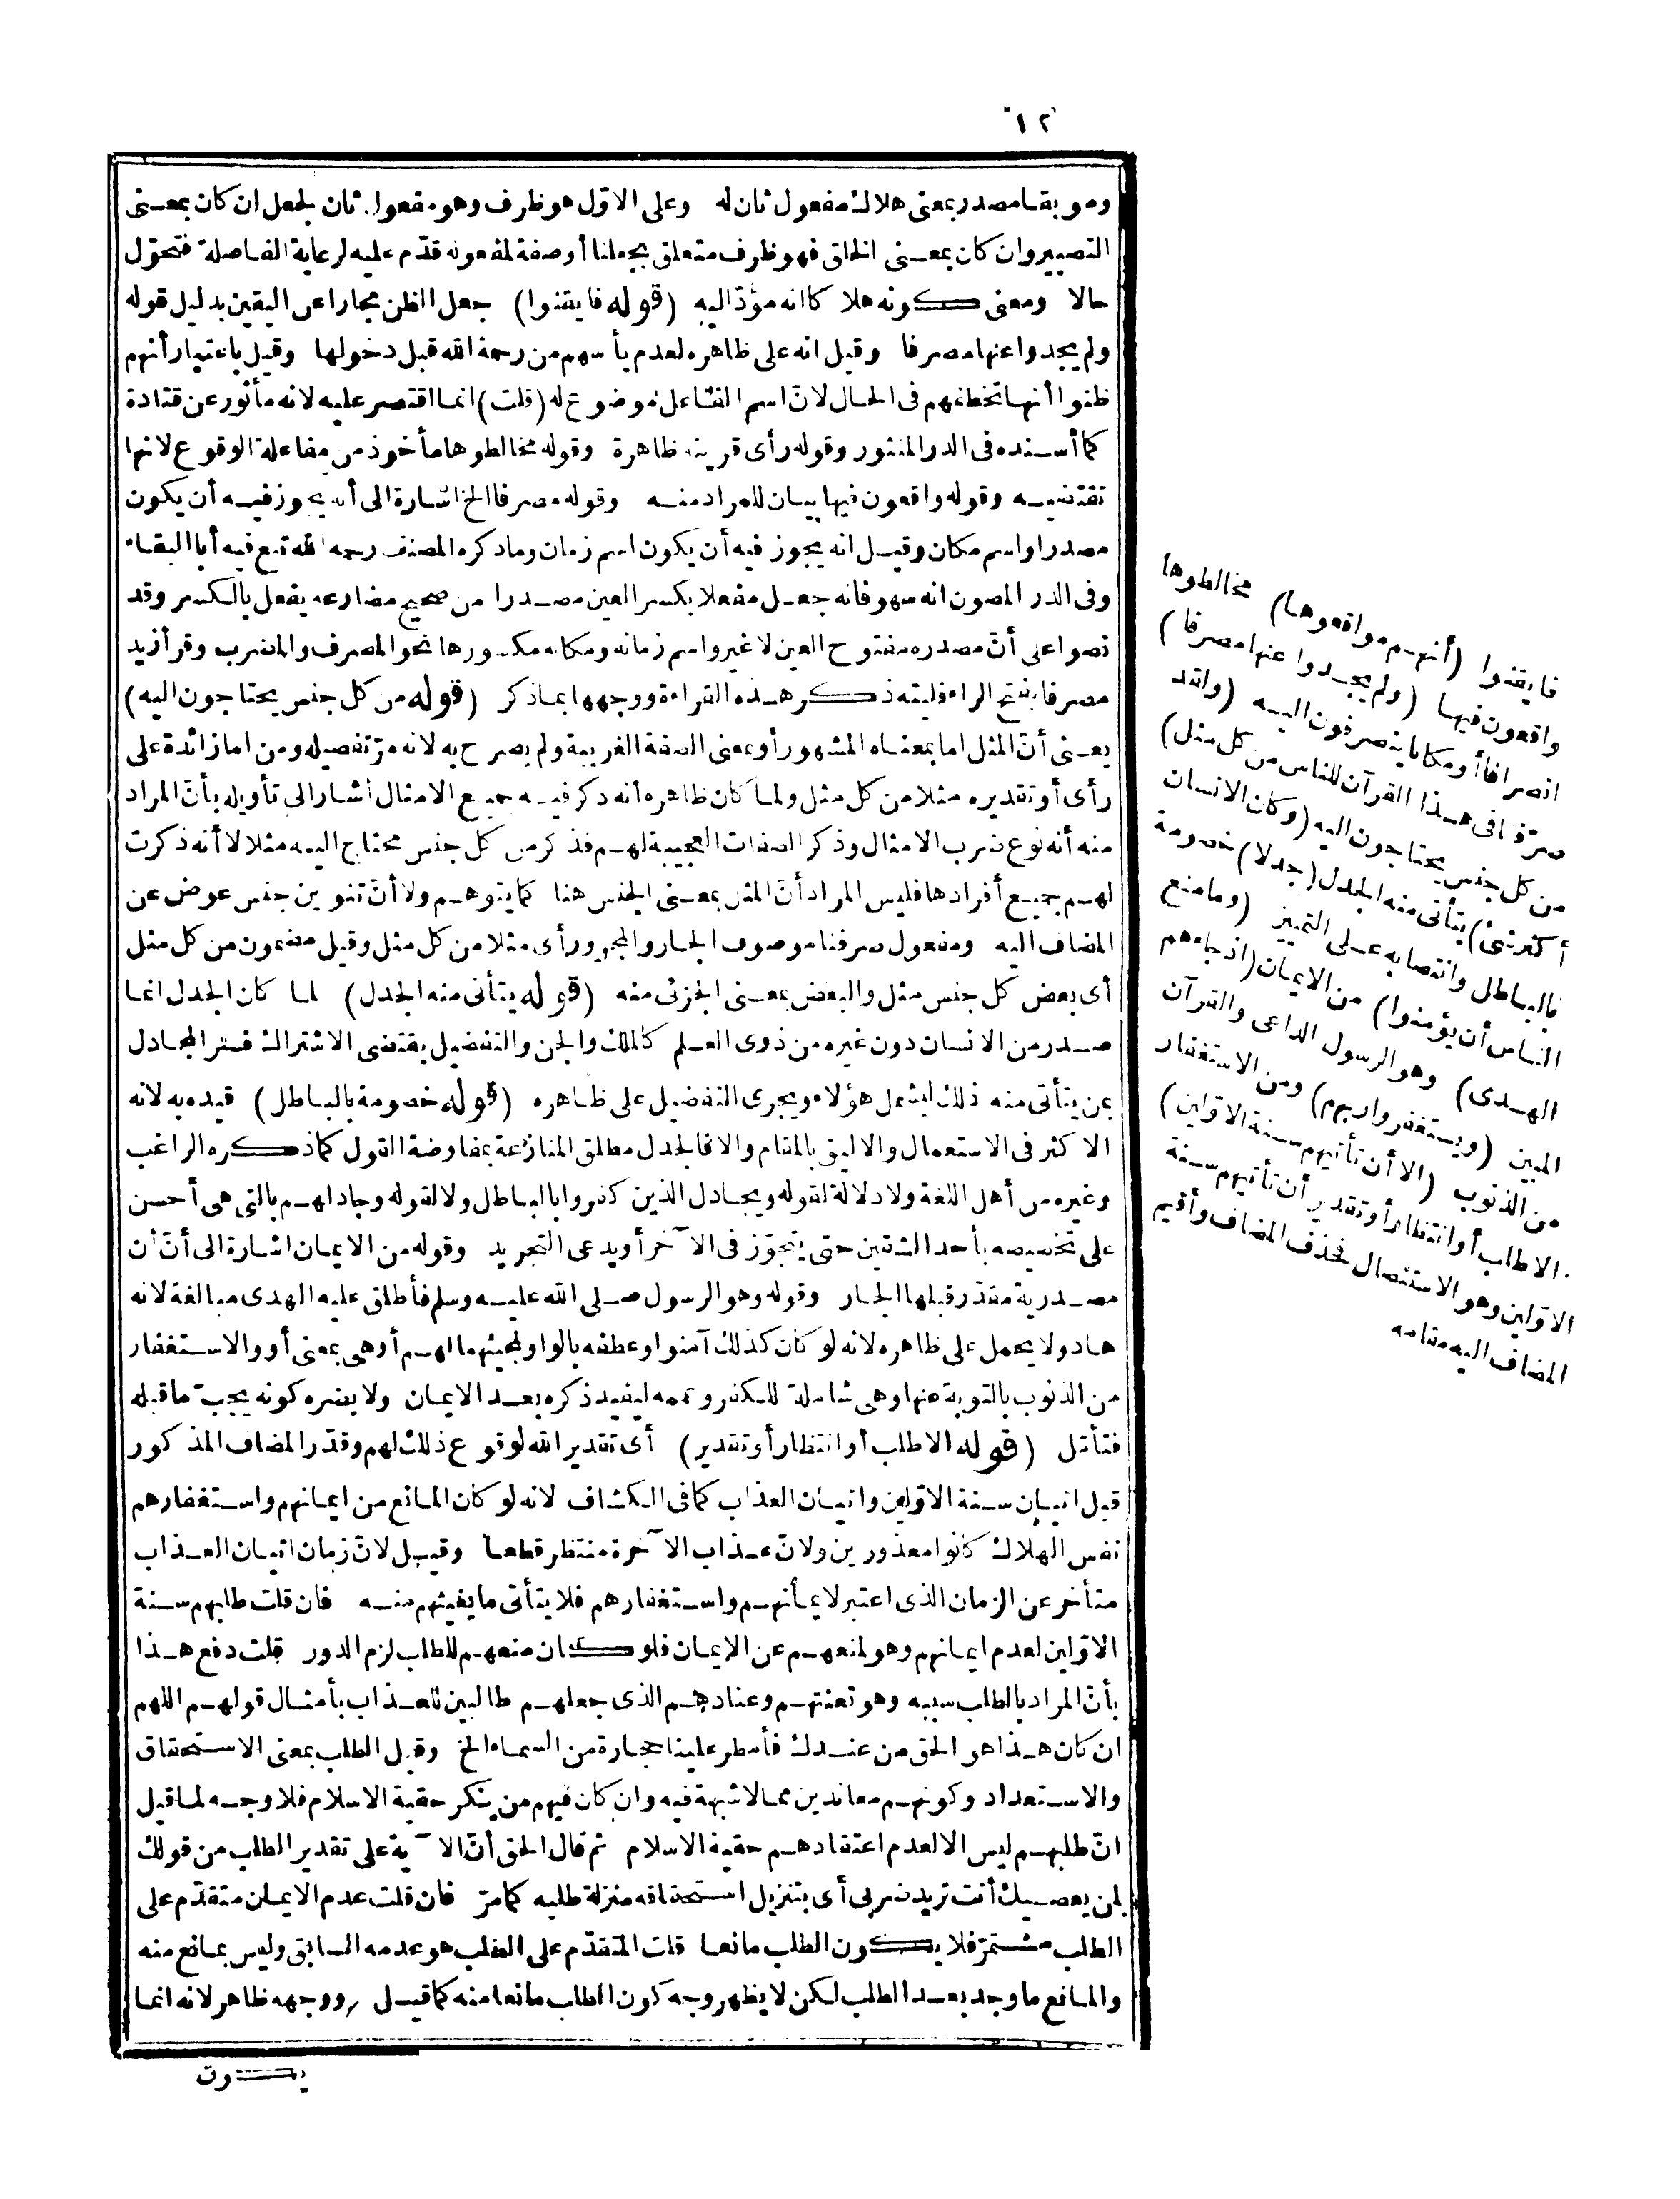 ١٢
وموبقا مصدر بمعنى هلاك مفعول ثان له وعلى الاوّل هو ظرف وهو مفعول ثان لجعل ان كان بمعنى
التصيير وان كان بمعنى الخلق فهو ظرف متعلق بجعلنا أو صفة لمفعوله قدّم عليه لرعاية الفاصلة فتحوّل
حالا ومعنى كونه هلاكا انه مؤدّ اليه (قوله فايقنوا) جعل الظن مجازا عن اليقين بدليل قوله
ولم يجدوا عنها مصرفا وقيل انه على ظاهره لعدم يأسهم من رحمة الله قبل دخولها وقيل باعتبار أنهم
ظنوا أنها تخطفهم فى الحال لانّ اسم الفاعل موضوع له (قلت) انما اقتصر عليه لانه مأثور عن قتادة
كما أسنده فى الدر المنثور وقوله رأى قرينة ظاهرة وقوله مخالطوها مأخوذ من مفاعلة الوقوع لانها
تقتضيه وقوله واقعون فيها بيان للمراد منه وقوله مصرفا الخ اشارة الى أنه يجوز فيه أن يكون
مصدرا واسم مكان وقيل انه يجوز فيه أن يكون اسم زمان وما ذكره المصنف رحمه الله تبع فيه أبا البقاء
وفى الدر المصون انه سهو فانه جعل مفعلا بكسر العين مصدرا من صحيح مضارعه يفعل بالكسر وقد
نصوا على أنّ مصدره مفتوح العين لا غير واسم زمانه ومكانه مكسورها نحو المصرف والمضرب وقرأ زيد
مصرفا بفتح الراء فليته ذكر هذه القراءة ووجهها بما ذكر (قوله من كل جنس يحتاجون اليه)
يعنى أنّ المثل اما بمعناه المشهور أو بمعنى الصفة الغريبة ولم يصرح به لانه مرّ تفصيله ومن اما زائدة على
رأى أو تقديره مثلا من كل مثل ولما كان ظاهره أنه ذكر فيه جميع الامثال أشار الى تأويله بأنّ المراد
منه أنه نوع ضرب الامثال وذكر الصفات العجيبة لهم فذكر من كل جنس محتاج اليه مثلا لا أنه ذكرت
لهم جميع أفرادها فليس المراد أنّ المثل بمعنى الجنس هنا كما يتوهم ولا أنّ تنوين جنس عوض عن
المضاف اليه ومفعول صرفنا موصوف الجار والمجرور أى مثلا من كل مثل وقيل مضمون من كل مثل
أى بعض كل جنس مثل والبعض بمعنى الجزئى منه (قوله يتأتى منه الجدل) لما كان الجدل انما
صدر من الانسان دون غيره من ذوى العلم كالملك والجن والتفضيل يقتضى الاشتراك فسر المجادل
بمن يتأتى منه ذلك ليشمل هؤلاء ويجرى التفضيل على ظاهره (قوله خصومة بالباطل) قيده به لانه
الاكثر فى الاستعمال والاليق بالمقام والا فالجدل مطلق المنازعة بمفاوضة القول كما ذكره الراغب
وغيره من أهل اللغة ولا دلالة لقوله ويجادل الذين كفروا بالباطل ولا لقوله وجادلهم بالتى هى أحسن
على تخصيصه بأحد الشقين حتى يتجوّز فى الآخر أو يدعى التجريد وقوله من الايمان اشارة الى أنّ أن
مصدرية مقدّر قبلها الجار وقوله وهو الرسول صلى الله عليه وسلم فأطلق عليه الهدى مبالغة لانه
هاد ولا يحمل على ظاهره لانه لو كان كذلك آمنوا وعطفه بالواو لمجيئهما لهم أو هى بمعنى أو والاستغفار
من الذنوب بالتوبة عنها وهى شاملة للكفر وعممه ليفيد ذكره بعد الايمان ولا يضره كونه يجبّ ما قبله
فتأمّل (قوله الا طلب أو انتظار أو تقدير) أى تقدير الله لوقوع ذلك لهم وقدّر المضاف المذكور
قبل اتيان سنة الاوّلين واتيان العذاب كما فى الكشاف لانه لو كان المانع من ايمانهم واستغفارهم
نفس الهلاك كانوا معذورين ولانّ عذاب الآخرة منتظر قطعا وقيل لانّ زمان اتيان العذاب
متأخر عن الزمان الذى اعتبر لايمانهم واستغفارهم فلا يتأتى ما يغيثهم منه فان قلت طلبهم سنة
الاوّلين لعدم ايمانهم وهو لمنعهم عن الايمان فلو كان منعهم للطلب لزم الدور قلت دفع هذا
بأنّ المراد بالطلب سببه وهو تعنتهم وعنادهم الذى جعلهم طالبين للعذاب بأمثال قولهم اللهم
ان كان هذا هو الحق من عندك فأمطر علينا حجارة من السماء الخ وقيل الطلب بمعنى الاستحقاق
والاستعداد وكونهم معاندين مما لا شبهة فيه وان كان فيهم من ينكر حقية الاسلام فلا وجه لما قيل
انّ طلبهم ليس الا لعدم اعتقادهم حقية الاسلام ثم قال الحق أنّ الآية على تقدير الطلب من قولك
لمن يعصيك أنت تريد ضربى أى بتنزيل استحقاقه منزلة طلبه كما مرّ فان قلت عدم الايمان متقدّم على
الطلب مستمرّ فلا يكون الطلب مانعا قلت المتقدّم على الطلب هو عدمه السابق وليس بمانع منه
والمانع ما وجد بعد الطلب لكن لا يظهر وجه كون الطلب مانعا منه كما قيل ووجهه ظاهر لانه انما
يكون
فايقنوا (أنهم مواقعوها) مخالطوها
واقعون فيها (ولم يجدوا عنها مصرفا)
انصرافا أو مكانا ينصرفون اليه (ولقد
صرّفنا فى هذا القرآن للناس من كل مثل)
من كل جنس يحتاجون اليه (وكان الانسان
أكثر شئ) يتأتى منه الجدل (جدلا) خصومة
بالباطل وانتصابه على التمييز (وما منع
الناس أن يؤمنوا) من الايمان (اذ جاءهم
الهدى) وهو الرسول الداعى والقرآن
المبين (ويستغفروا ربهم) ومن الاستغفار
من الذنوب (الا أن تأتيهم سنة الاوّلين)
الا طلب أو انتظار أو تقدير أن تأتيهم سنة
الاوّلين وهو الاستئصال فحذف المضاف وأقيم
المضاف اليه مقامه